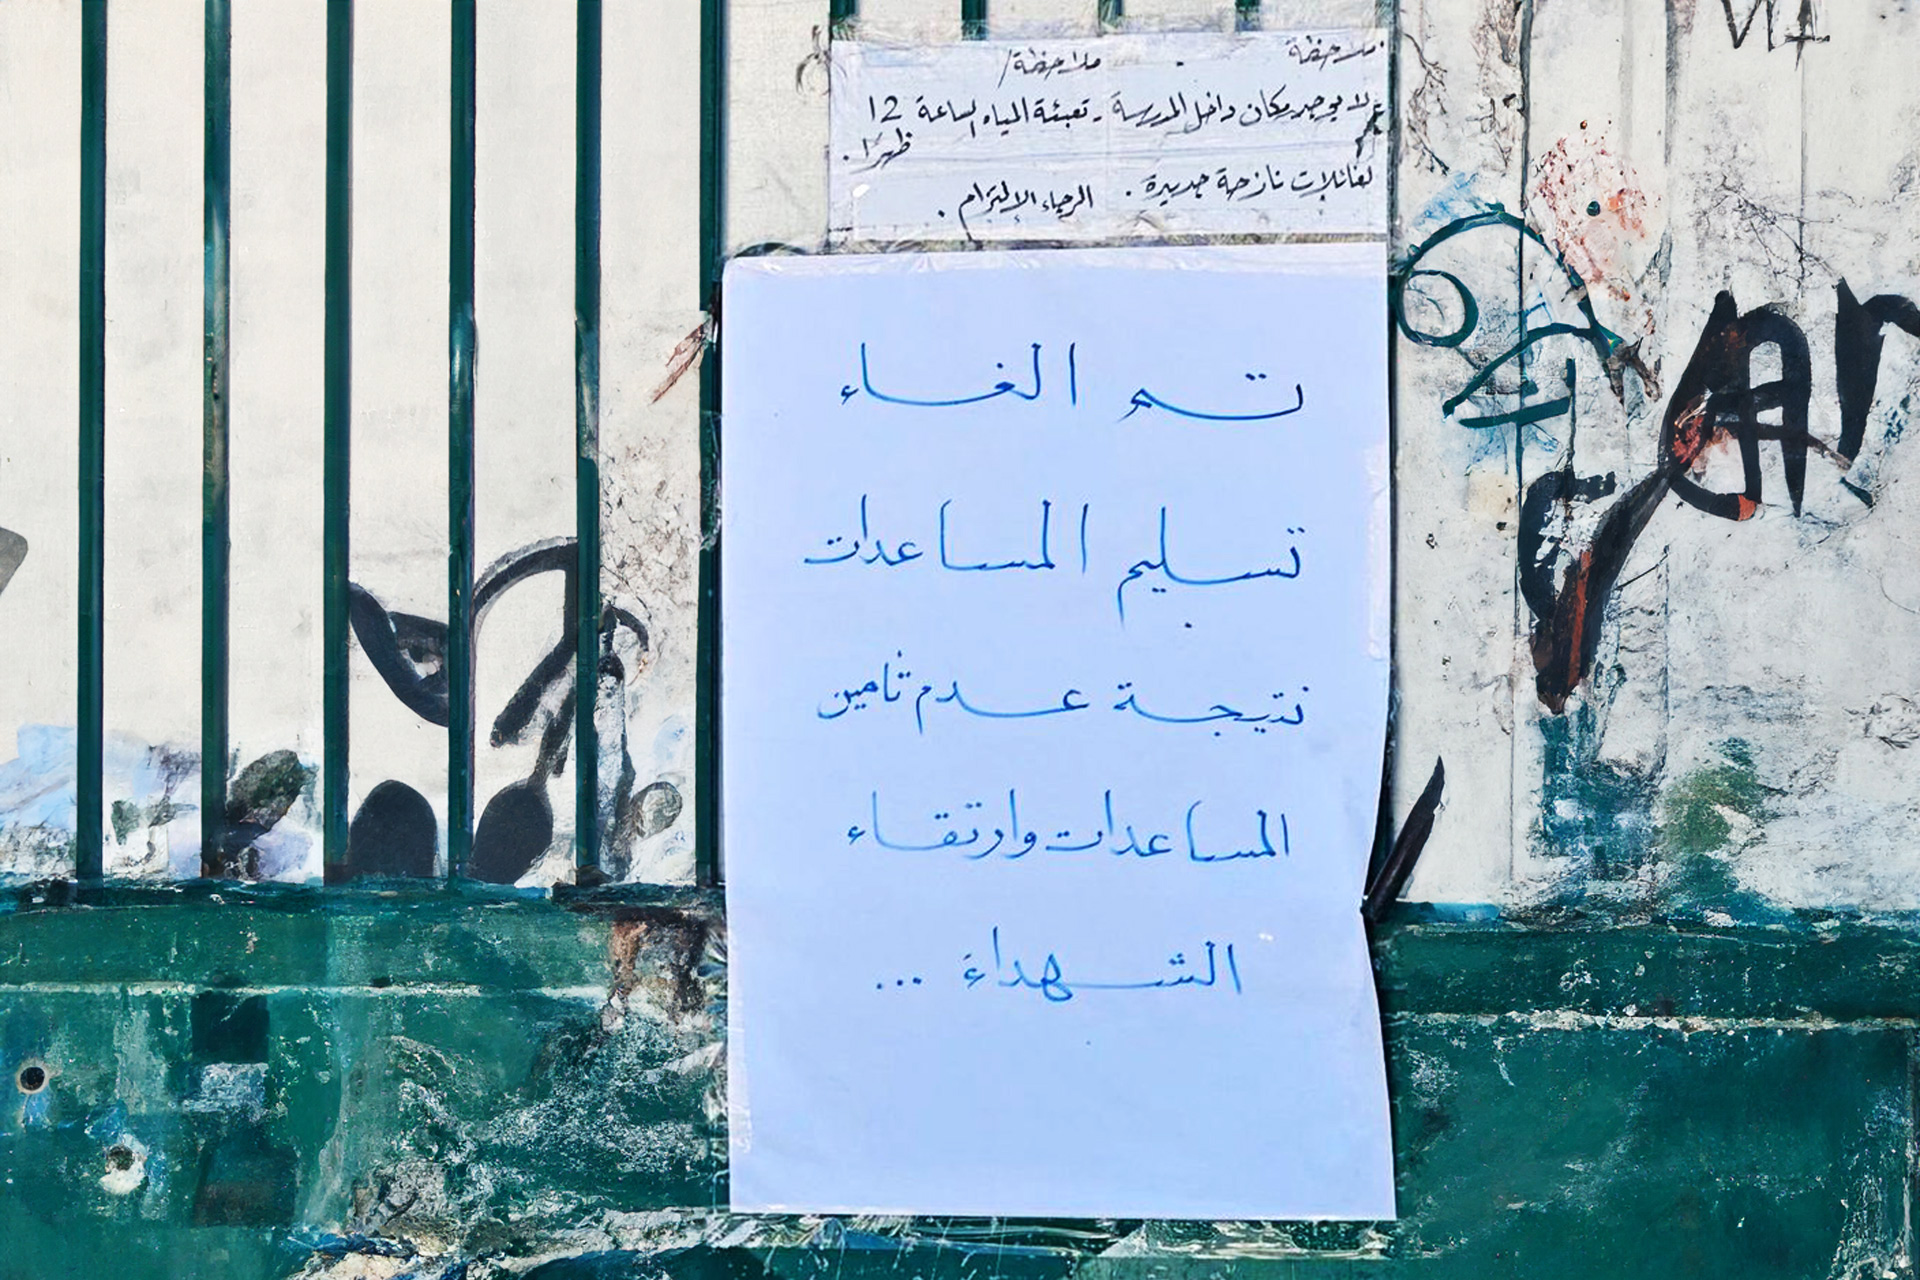 ملاحظة
لا يوجد مكان داخل المدرسة
لعائلات نازحة جديدة .
ملاحظة /
- تعبئة المياه الساعة 12
ظهرًا .
الرجاء الالتزام .
تم الغاء
تسليم المساعدات
نتيجة عدم تأمين
المساعدات وارتقاء
الشهداء ...